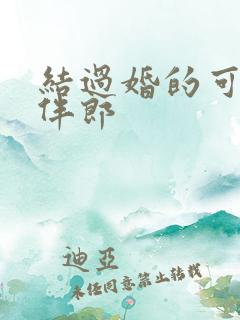 結過婚的可
伴郎
迪亞
未经同意禁止转载